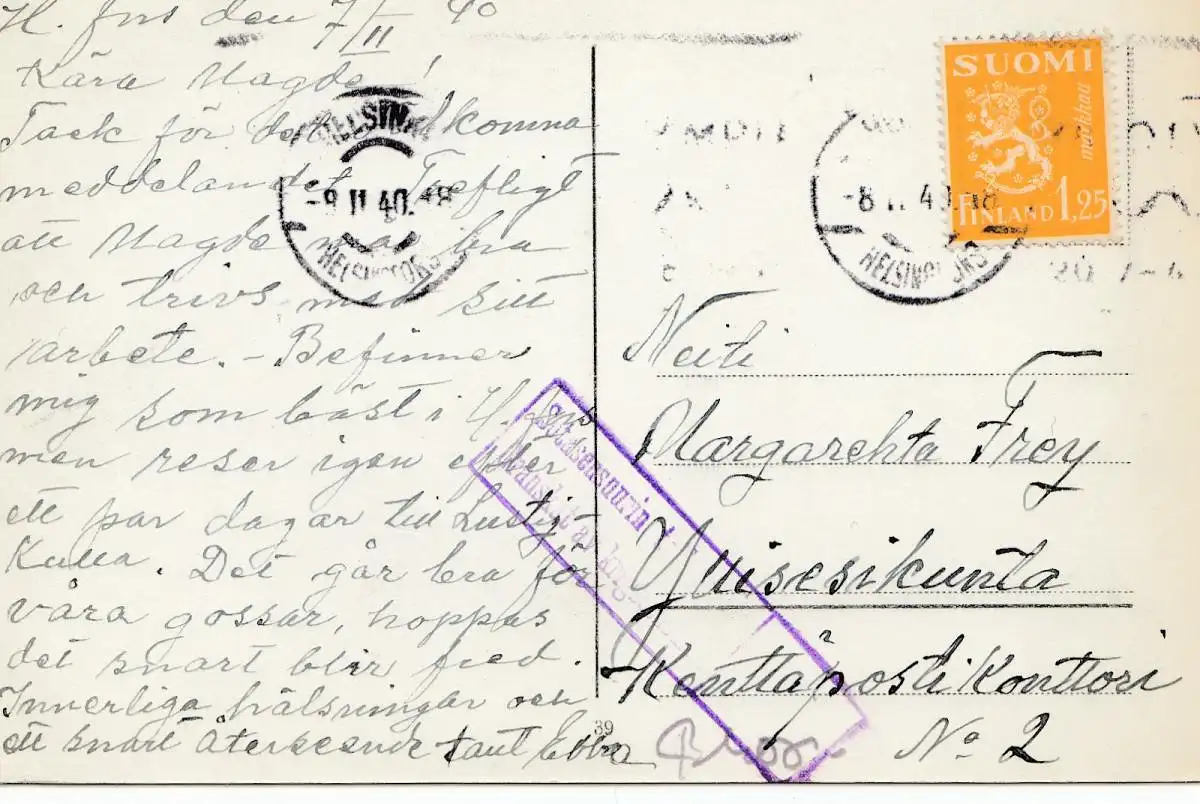 H. fors den 7/II 40
Kära Magda!
Tack för det komna
meddelandet. Trefligt
att Magda mår bra
och trivs med sitt
arbete. - Befinner
mig som bäst i H. fors
men reser igen efter
ett par dagar till Lustig
Kulla. Det går bra för
våra gossar, hoppas
det snart blir fred.
Innerliga hälsningar och
ett snart återseende tant Ebba
HELSINKI
-8 II 40. 18
HELSINGFORS
SUOMI
markkaa
FINLAND 1,25
-8 II 40. 18
HELSINGFORS
Neiti
Margarehta Frey
Kenttäposti Konttori
No 2
Sotasensuurin
Granskat av krigs
39